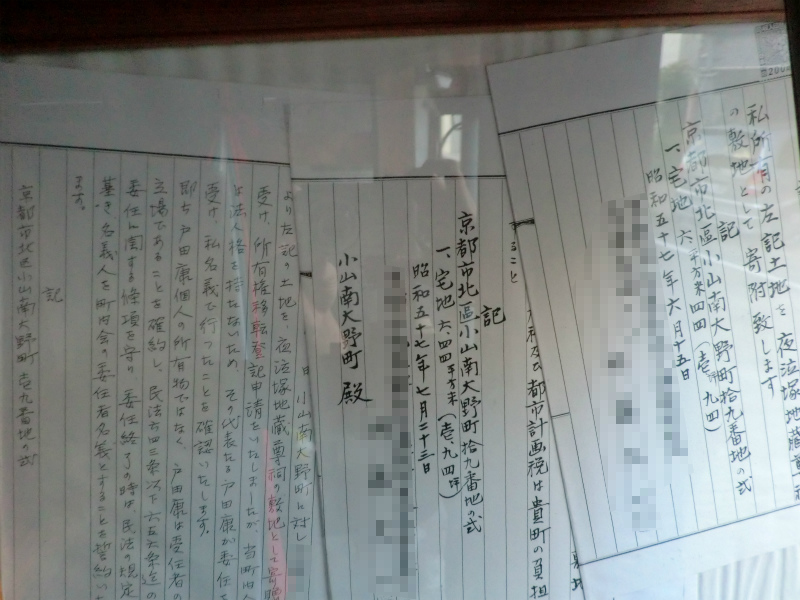 私所有の左記土地を夜泣塚地蔵尊
の敷地として寄附致します
記
京都市北區小山南大野町拾九番地の弍
一、宅地 六平方米四四(壱坪九四)
昭和五十七年六月十五日
都市計画税は貴町の負担
こと
記
京都市北區小山南大野町拾九番地の弍
一、宅地 六・四四平方米(壱、九四坪)
昭和五十七年七月二十三日
小山南大野町 殿
日 小山南大野町に対し
より左記の土地を、夜泣塚地蔵尊祠の敷地として寄贈
受け、所有権移転登記申請をいたしましたが、当町内
は法人格を持たないため、その代表たる戸田康が委任
受け、私名義で行ったことを確認いたします。
即ち戸田康個人の所有物ではなく、戸田康は受任者の
立場であることを確約し、民法六四三条以下六五六条迄の
委任に関する條項を守り、委任終了の時は、民法の規定
基き、名義人を町内会の委任者名義とすることを誓約い
ます。
記
京都市北区小山南大野町 壱九番地ノ弍